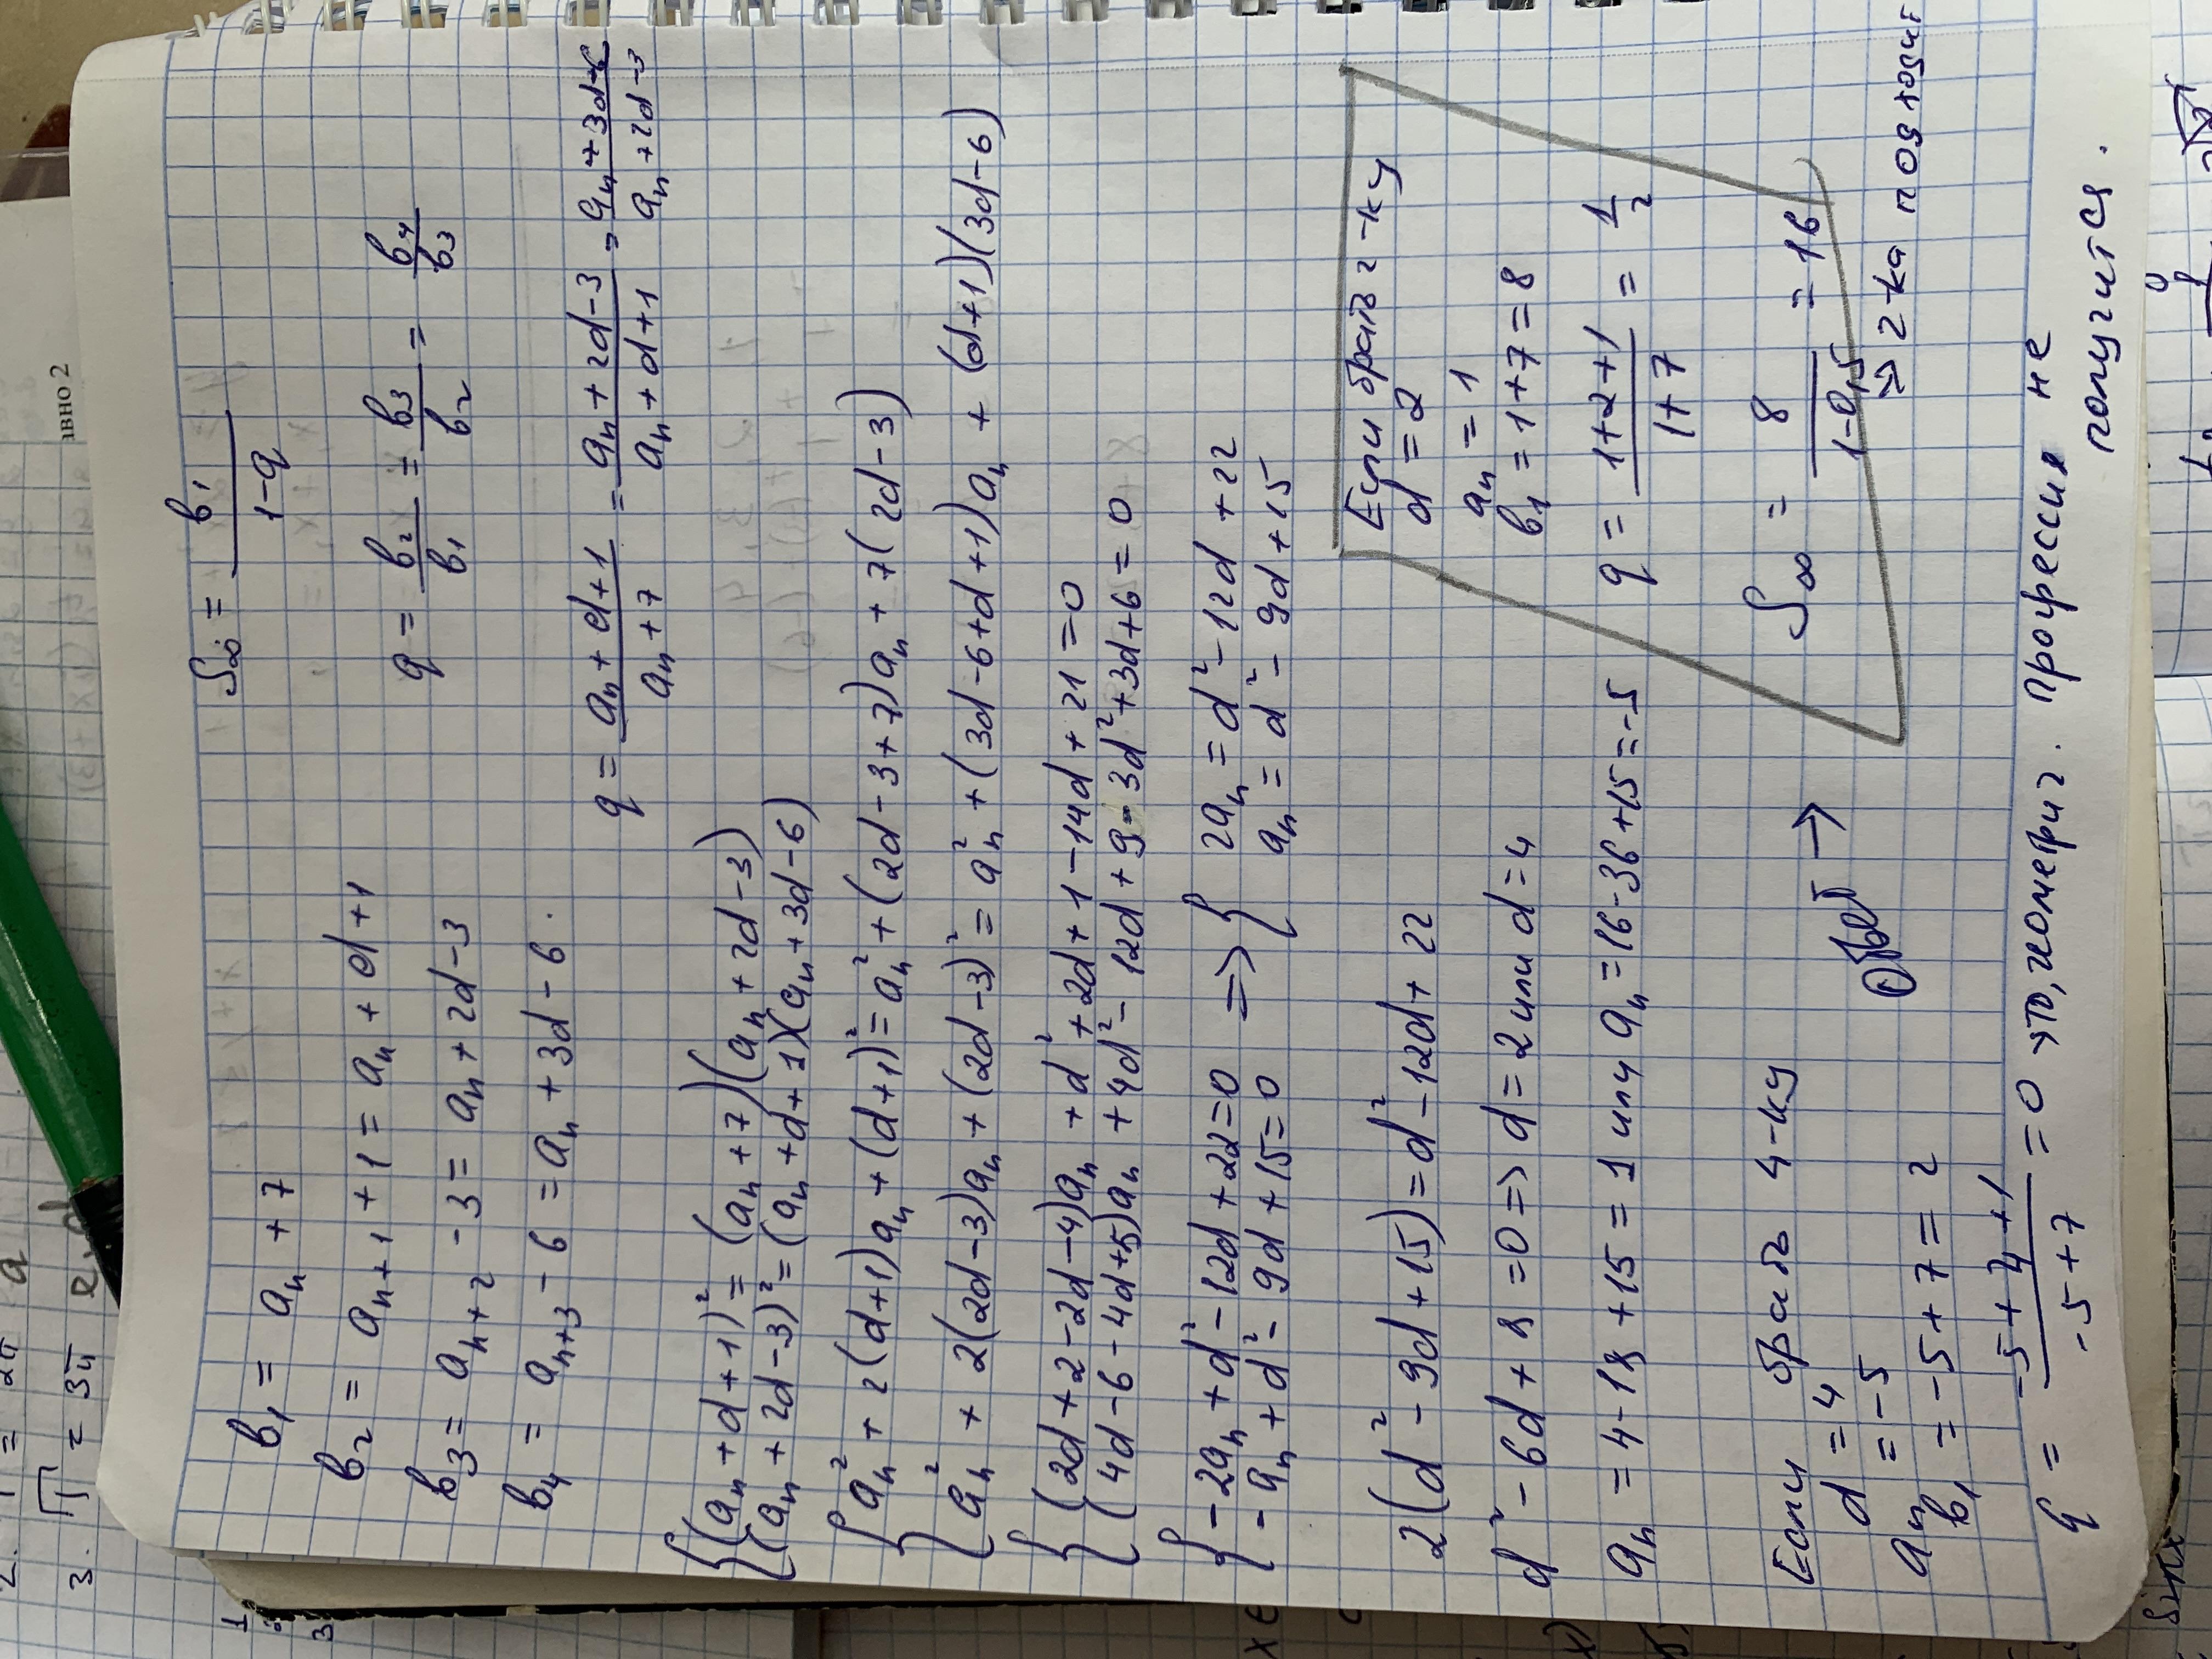 S∞ = b₁/(1-q)
b₁ = aₙ + 7
b₂ = aₙ₊₁ + 1 = aₙ + d + 1
q = b₂/b₁ = b₃/b₂ = b₄/b₃
b₃ = aₙ₊₂ - 3 = aₙ + 2d - 3
b₄ = aₙ₊₃ - 6 = aₙ + 3d - 6.
q = (aₙ + d + 1)/(aₙ + 7) = (aₙ + 2d - 3)/(aₙ + d + 1) = (aₙ + 3d - 6)/(aₙ + 2d - 3)
{(aₙ + d + 1)² = (aₙ + 7)(aₙ + 2d - 3)
(aₙ + 2d - 3)² = (aₙ + d + 1)(aₙ + 3d - 6)
{aₙ² + 2(d+1)aₙ + (d+1)² = aₙ² + (2d - 3 + 7)aₙ + 7(2d - 3)
aₙ² + 2(2d - 3)aₙ + (2d - 3)² = aₙ² + (3d - 6 + d + 1)aₙ + (d+1)(3d - 6)
{(2d + 2 - 2d - 4)aₙ + d² + 2d + 1 - 14d + 21 = 0
(4d - 6 - 4d + 5)aₙ + 4d² - 12d + 9 - 3d² + 3d + 6 = 0
{-2aₙ + d² - 12d + 22 = 0 => {2aₙ = d² - 12d + 22
-aₙ + d² - 9d + 15 = 0 aₙ = d² - 9d + 15
2(d² - 9d + 15) = d² - 12d + 22
d² - 6d + 8 = 0 => d = 2 или d = 4
aₙ = 4 - 18 + 15 = 1 или aₙ = 16 - 36 + 15 = -5
Если брать 4-ку
d = 4
aₙ = -5
b₁ = -5 + 7 = 2
q = (-5 + 4 + 1)/(-5 + 7) = 0 что, геометрич. прогрессия не
получится.
Ответ →
Если брать 2-ку
d = 2
aₙ = 1
b₁ = 1 + 7 = 8
q = (1 + 2 + 1)/(1 + 7) = 1/2
S∞ = 8/(1 - 0,5) = 16
=> 2-ка подходит
авно 2